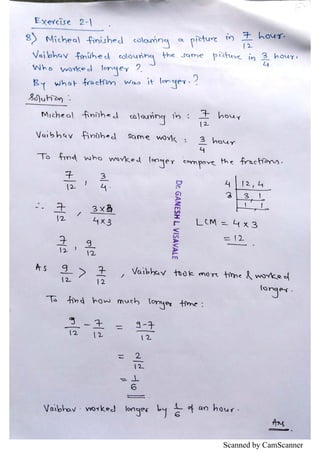 Exercise 2.1
8) Micheal finished colouring a picture in 7/12 hour.
Vaibhav finished colouring the same picture in 3/4 hour.
Who worked longer?
By what fraction was it longer?
Solution:
Micheal finished colouring in : 7/12 hour
Vaibhav finished same work : 3/4 hour
To find who worked longer compare the fractions.
7/12 , 3/4
4 | 12, 4
3 | 3, 1
1, 1
∴ 7/12 , 3×3/4×3
LCM = 4 × 3
= 12
7/12 , 9/12
As 9/12 > 7/12 , Vaibhav took more time & worked
longer.
To find how much longer time :
9/12 - 7/12 = 9-7/12
= 2/12
= 1/6
Vaibhav worked longer by 1/6 of an hour.
Ans
Dr. GANESH L. VISAVALE
Scanned by CamScanner